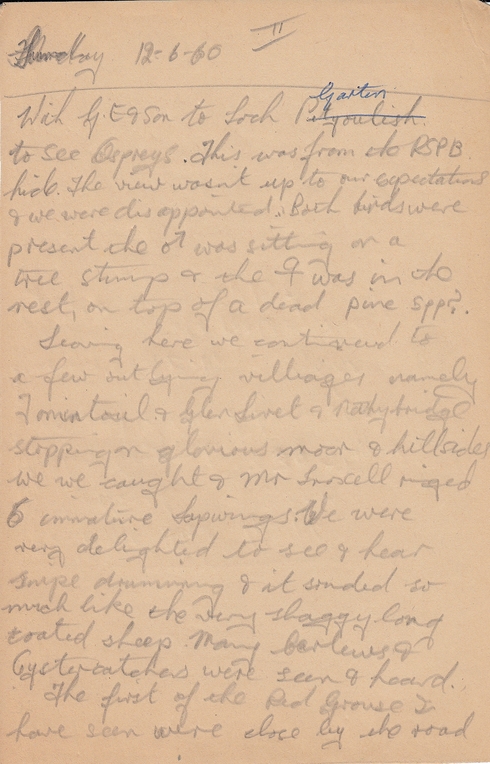 II
Thursday 12-6-60
With G. E & Son to Loch Pityoulish Garten
to see Ospreys. This was from the RSPB
hide. The view wasn't up to our expectations
& we were disappointed. Both birds were
present the ♂ was sitting on a
tree stump & the ♀ was in the
nest, on top of a dead pine spp?.
Leaving here we continued to
a few outlying villiages namely
Tomintoul & Glen Livet & Nethybridge
stopping on glorious moor & hillsides
we we caught & Mr ringed
6 immature lapwings. We were
very delighted to see & hear
snipe drumming & it sounded so
much like the very shaggy long
coated sheep. Many Curlews &
Oystercatchers were seen & heard.
The first of the Red Grouse I
have seen were close by the road